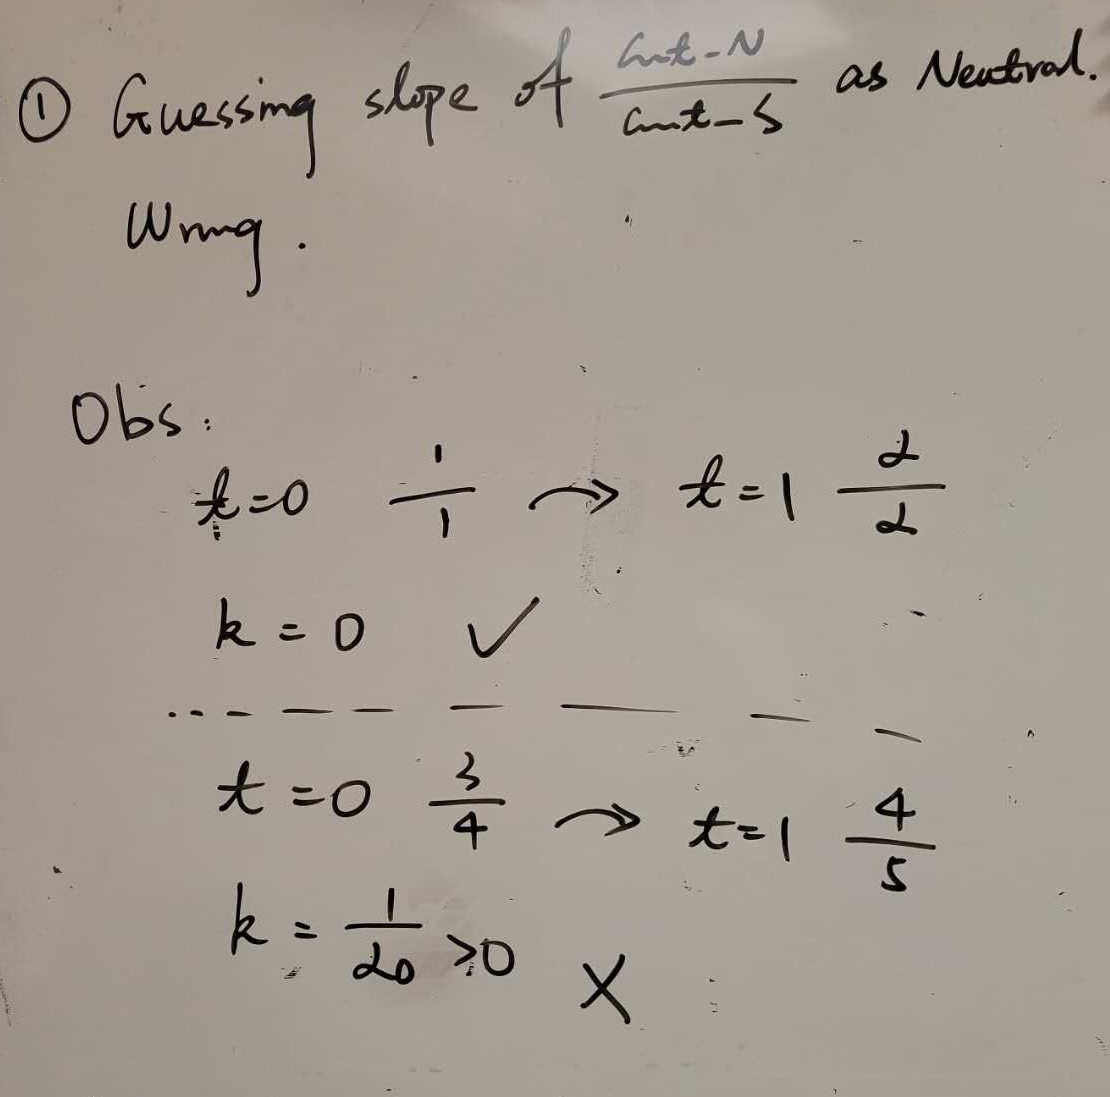 ① Guessing slope of cnt-N / cnt-S as Neutral.
Wrong.
Obs:
t=0 1/1 → t=1 2/2
k=0 ✓
t=0 3/4 → t=1 4/5
k = 1/20 >0 X